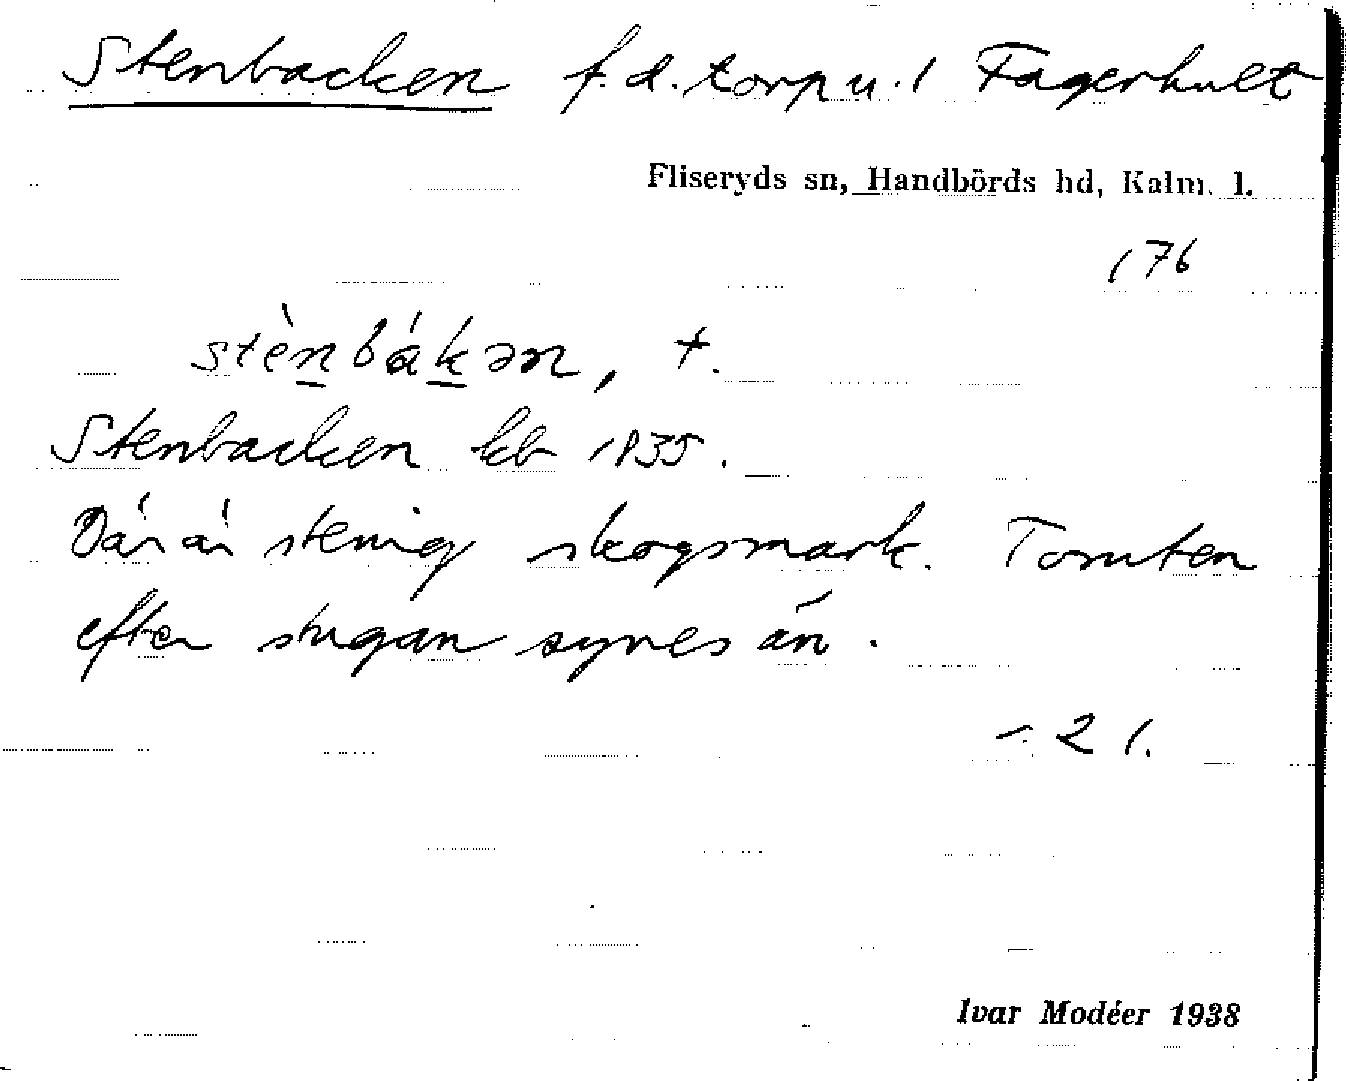 Stenbacken f.d. torp u. 1 Fagerhult
Fliseryds sn, Handbörds hd, Kalm. l.
176
stènbákən, +.
Stenbacken kb 1835.
Där är stenig skogsmark. Tomten
efter stugan synes än.
- 2 1.
Ivar Modéer 1938